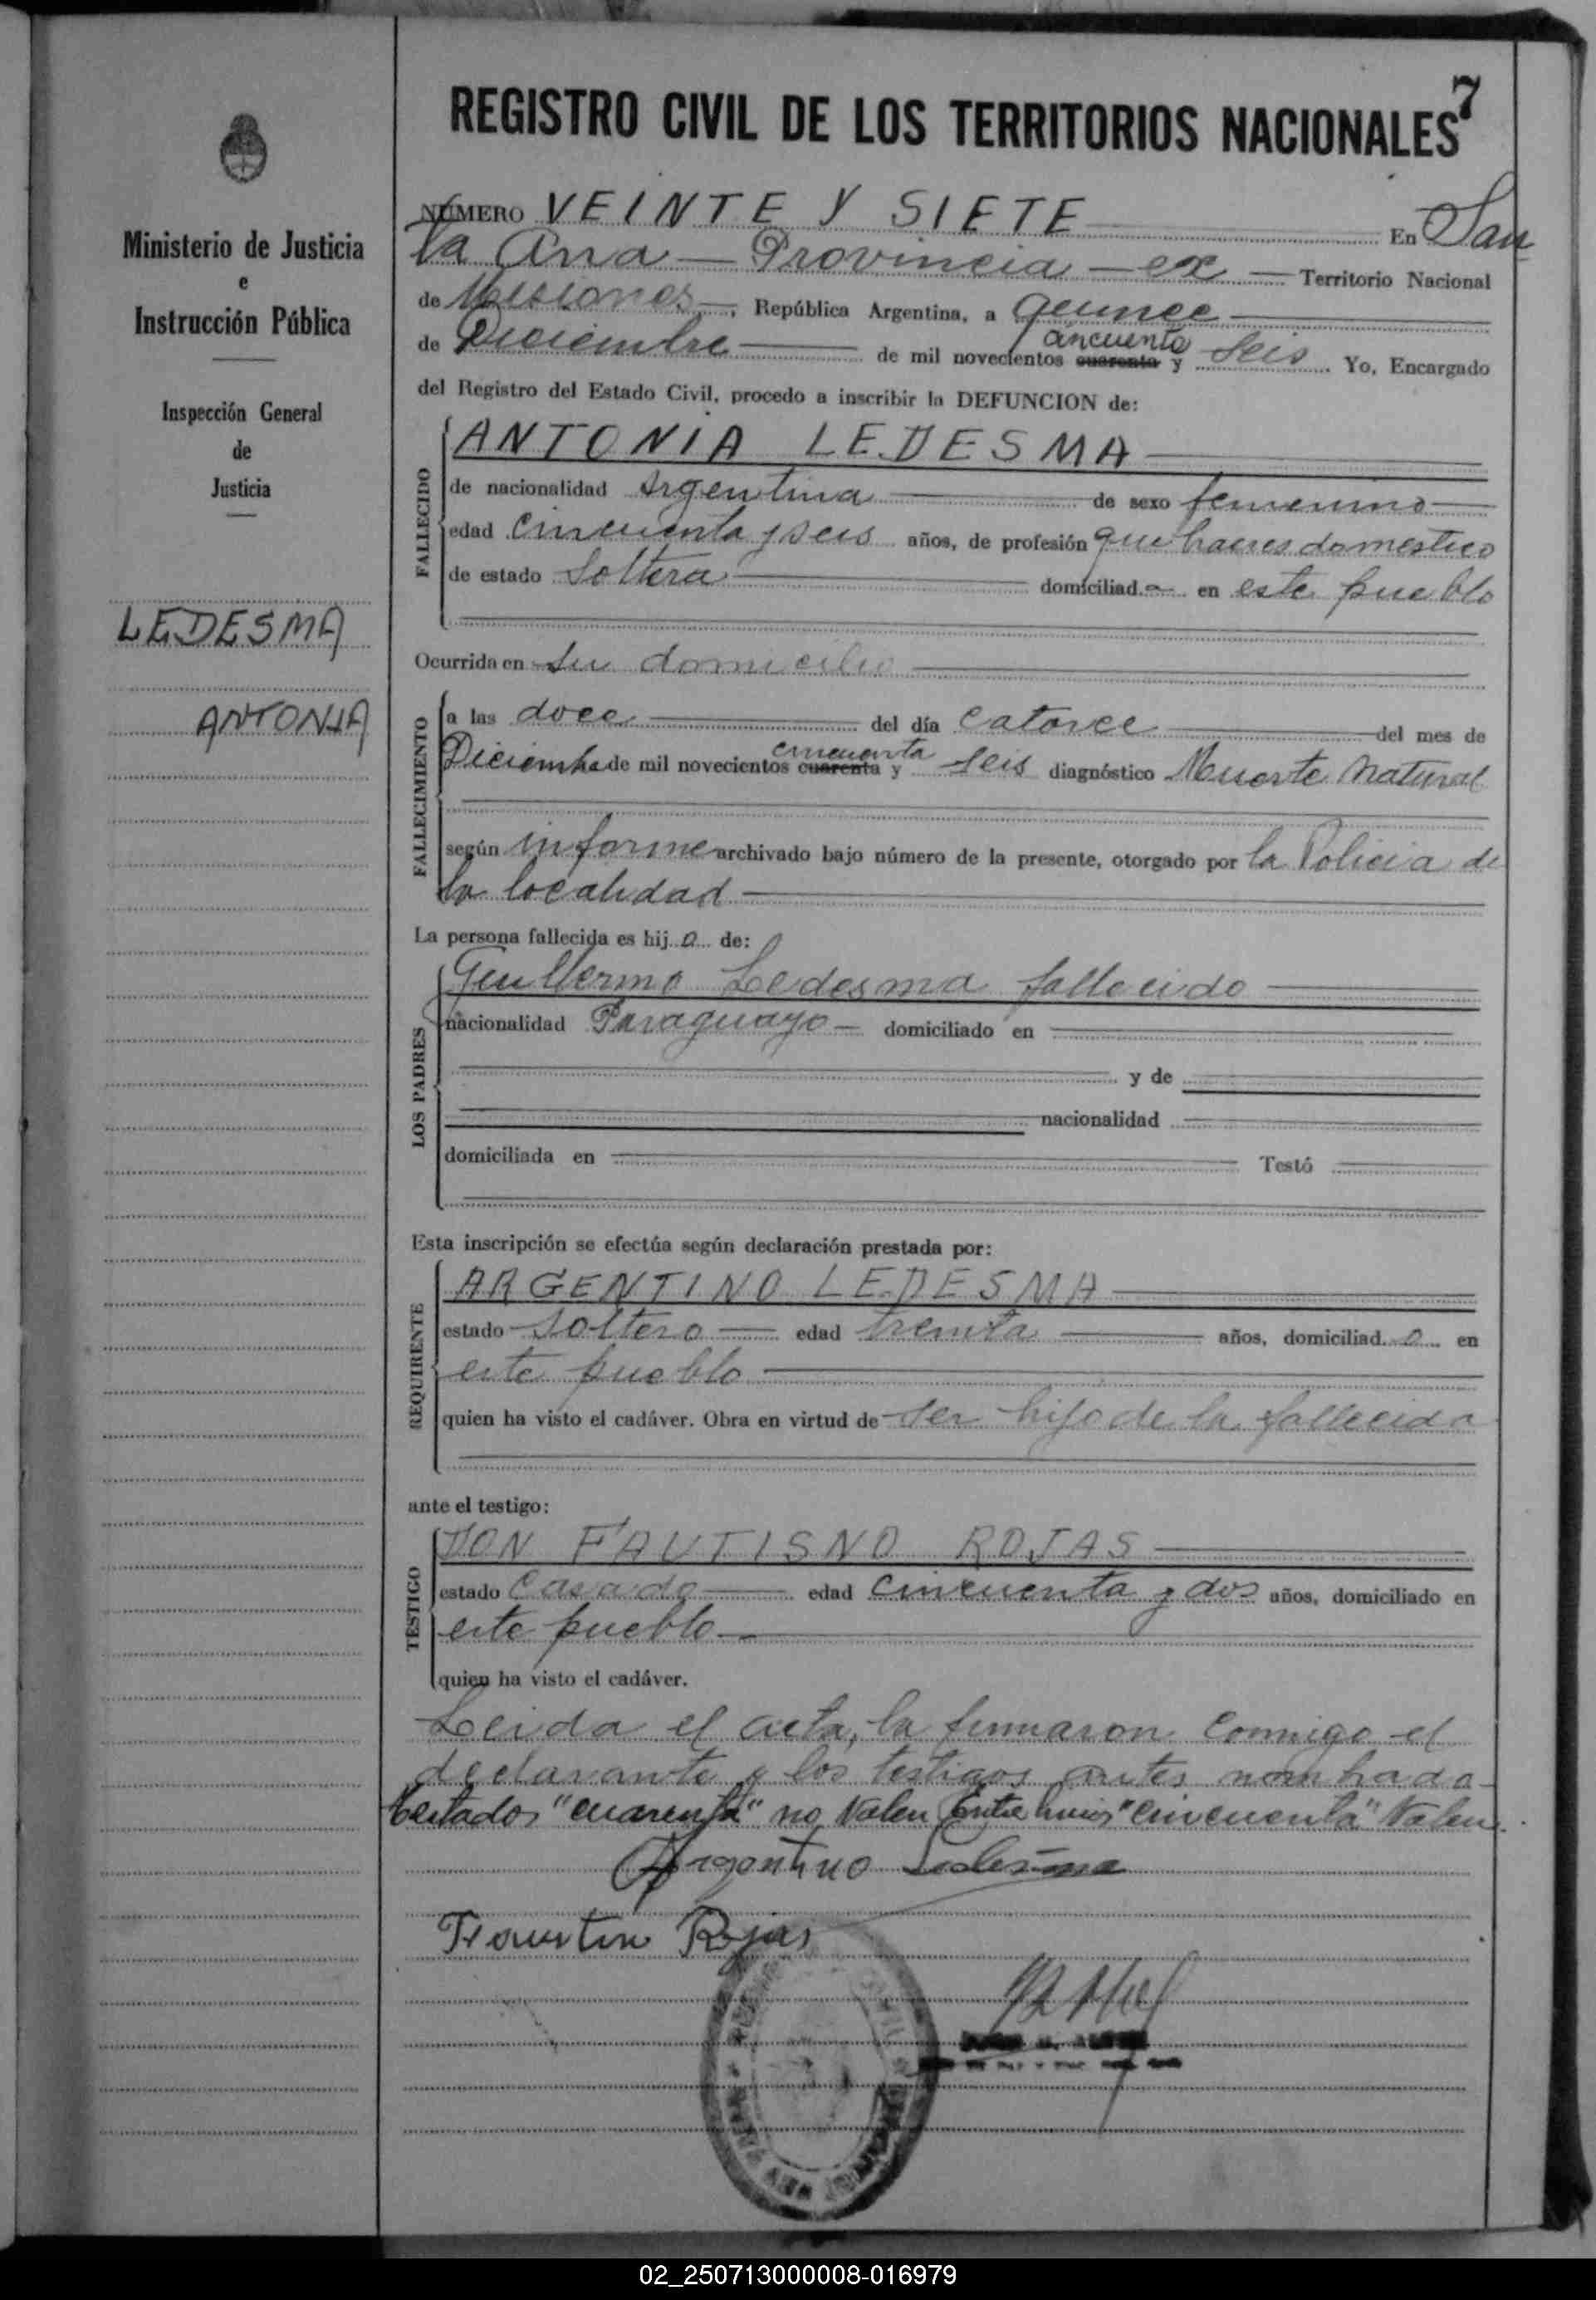 7
REGISTRO CIVIL DE LOS TERRITORIOS NACIONALES
Ministerio de Justicia
e
Instrucción Pública
Inspección General
de
Justicia
LEDESMA
ANTONIA
NÚMERO VEINTE Y SIETE En San
ta Ana — Provincia — ex — Territorio Nacional
de Misiones, República Argentina, a quince
de Diciembre de mil novecientos cuarenta cincuenta y seis. Yo, Encargado
del Registro del Estado Civil, procedo a inscribir la DEFUNCION de:
FALLECIDO
ANTONIA LEDESMA
de nacionalidad argentina de sexo femenino
edad cincuenta y seis años, de profesión quehaceres domestico
de estado Soltera domiciliad a en este pueblo
Ocurrida en su domicilio
FALLECIMIENTO
a las doce del día catorce del mes de
Diciembre de mil novecientos cuarenta cincuenta y seis diagnóstico Muerte natural
según informe archivado bajo número de la presente, otorgado por la Policia de
la localidad
La persona fallecida es hij a de:
LOS PADRES
Guillermo Ledesma fallecido
nacionalidad Paraguayo — domiciliado en
y de
nacionalidad
domiciliada en Testó
Esta inscripción se efectúa según declaración prestada por:
REQUIRENTE
ARGENTINO LEDESMA
estado soltero — edad treinta años, domiciliad o en
este pueblo
quien ha visto el cadáver. Obra en virtud de ser hijo de la fallecida
ante el testigo:
TESTIGO
DON FAUTISNO ROJAS
estado Casado edad cincuenta y dos años, domiciliado en
este pueblo
quien ha visto el cadáver.
Leida el acta, la firmaron conmigo el
declarante y los testigos antes nombrado
testados "cuarenta" no Valen Entre lineas "cincuenta" Valen
Argentino Ledesma
Faustin Rojas
02_250713000008-016979